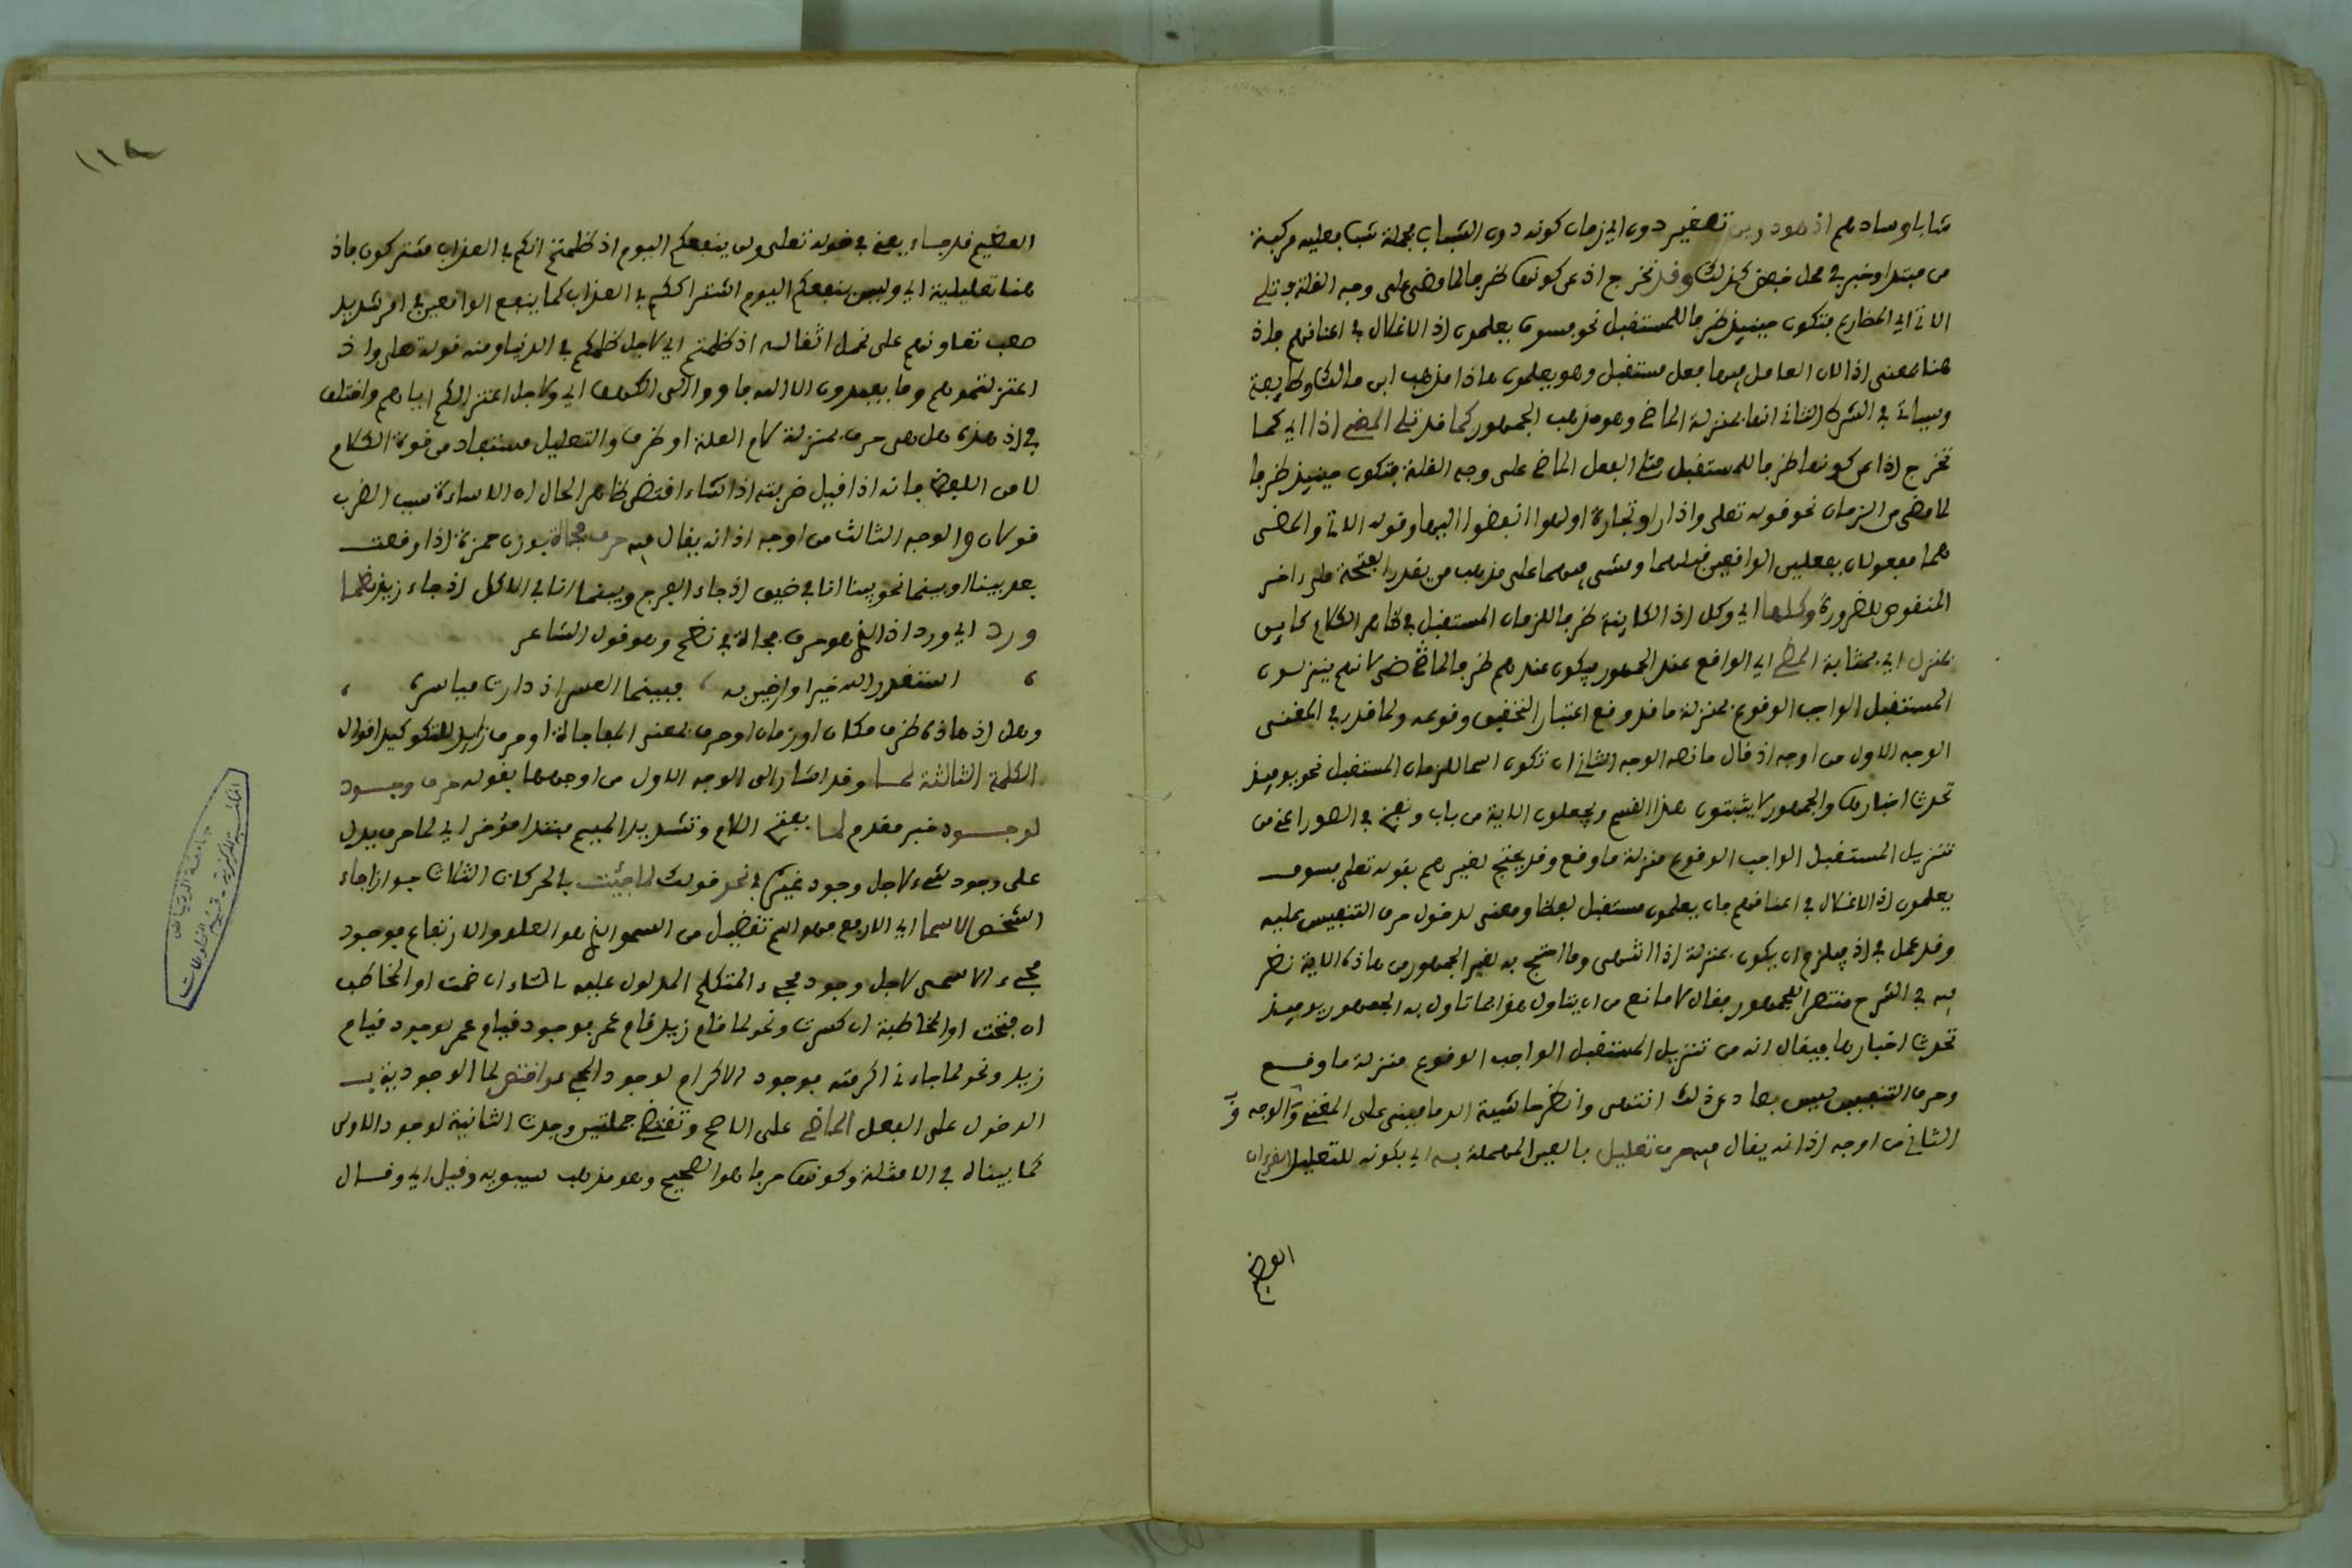 شابا وسادهم اذ هو دوين تصغير دون اي زمان كونه دون الشباب فجملة شب بعليه مركبة
من مبتدا وخبر في محل خفض كذلك وقد تخرج اذ عن كونها ظرفا لما مضى على وجه القلة فتلي
الاتي اي المضارع فتكون حينيذ ظرفا للمستقبل نحو فسوف يعلمون اذ الاغلال في اعنافهم فاذ
هنا بمعنى اذا لان العامل فيها فعل مستقبل وهو يعلمون هاذا مذهب ابن مالك وطايفة
وسياتي في الشرح الثاني انها بمنزلة الماضي وهو مذهب الجمهور كما قد تلي المضي اذا اي كما
تخرج اذا عن كونها ظرفا للمستقبل فتلي الفعل الماضي على وجه القلة فتكون حينيذ ظرفا
لما مضى من الزمان نحو قوله تعلى واذا راوا تجارة او لهوا انفضوا اليها وقوله الاتي والمضي
هما مفعولان بفعلين الواقعين قبلهما ومشى فيهما على مذهب من يقدر الفتحة على ءاخر
المنقوص للضرورة وكلها اي وكل اذ الكاينة ظرفا للزمان المستقبل في ظاهر الكلام كاين
بمنزل اي بمثابة المضي اي الواقع عند الجمهور فيكون عندهم ظرفا لما مضى لانهم ينزلون
المستقبل الواجب الوقوع بمنزلة ما قد وقع اعتبارا لتحقيق وقوعه ولما قدر في المغنى
الوجه الاول من اوجه اذ قال ما نصه الوجه الثاني ان تكون اسما للزمان المستقبل نحو يوميذ
تحدث اخبارها والجمهور لا يثبتون هذا القسم ويجعلون الاية من باب ونفخ في الصور اعني من
تنزيل المستقبل الواجب الوقوع منزلة ما وقع وقد يحتج لغيرهم بقوله تعلى فسوف
يعلمون اذ الاغلال في اعنافهم فان يعلمون مستقبل لفظا ومعنى لدخول حرف التنفيس عليه
وقد عمل في اذ فيلزم ان يكون بمنزلة اذا انتهى وما احتج به لغير الجمهور من هاذه الاية نظر
فيه في الشرح منتصرا للجمهور فقال لا مانع من ان يتاول هذا بما تاول به الجمهور يوميذ
تحدث اخبارها فيقال انه من تنزيل المستقبل الواجب الوقوع منزلة ما وقع
وحرف التنفيس ليس بصاد عن ذلك انتهى وانظر حاشية الدمامينى على المغنى والوجه
الثاني من اوجه اذ انه يقال فيه حرف تعليل بالعين المهملة اي بكونه للتعليل القرءان
العظيم
١١٨
العظيم قد جاء يعني في قوله تعلى ولن ينفعكم اليوم اذ ظلمتم انكم في العذاب مشتركون فاذ
هنا تعليلية اي ولن ينفعكم اليوم اشتراككم في العذاب كما ينفع الواقعين في امر شديد
صعب تعاونهم على تحمل اثقاله اذ ظلمتم اي لاجل ظلمكم في الدنيا ومنه قوله تعلى واذ
اعتزلتموهم وما يعبدون الا الله فاووا الى الكهف اي ولاجل اعتزالكم اياهم واختلف
في اذ هذه هل هي حرف بمنزلة لام العلة او ظرف والتعليل مستفاد من قوة الكلام
لا من اللفظ فانه اذا قيل ضربته اذ اساء اقتضى ظاهر الحال ان الاساءة سبب الضرب
قولان والوجه الثالث من اوجه اذ انه يقال فيه حرف فجاة بوزن حمزة اذا وقعت
بعد بينا او بينما نحو بينا انا في ضيق اذ جاء الفرج وبينما انا في الاكل اذ جاء زيد نظما
ورد اي ورد اذ الذي هو حرف فجاة في نظم وهو قول الشاعر
استقدر الله خيرا وارضين به ، فبينما العسر اذ دارت مياسر
وهل اذ هاذه ظرف مكان او زمان او حرف بمعنى المفاجاة او حرف زايد للتوكيد اقوال
الكلمة الثالثة لما وقد اشار الى الوجه الاول من اوجهها بقوله حرف وجود
لوجود خبر مقدم لما بفتح اللام وتشديد الميم مبتدا مؤخر اي لما حرف يدل
على وجود شيء لاجل وجود غيره في نحو قولك لما جئت بالحركات الثلاث جوازا جاء
الشخص الاسما اي الارفع فهو اسم تفضيل من السمو الذي هو العلو والارتفاع فوجود
مجيء الاسمى لاجل وجود مجيء المتكلم المدلول عليه بالتاء ان ضمت او المخاطب
ان فتحت او المخاطبة ان كسرت ونحو لما قام زيد قام عمر فوجود قيام عمر لوجود قيام
زيد ونحو لما جاءني اكرمته فوجود الاكرام لوجود المجيء واختص لما الوجودية بـ
الدخول على الفعل الماضي على الاصح وتقتضي جملتين وجدت الثانية لوجود الاولى
كما بيناه في الامثلة وكونها حرفا هو الصحيح وهو مذهب سيبويه وقيل اي وقال
المكتبة المركزية - قسم المخطوطات
جامعة الرياض